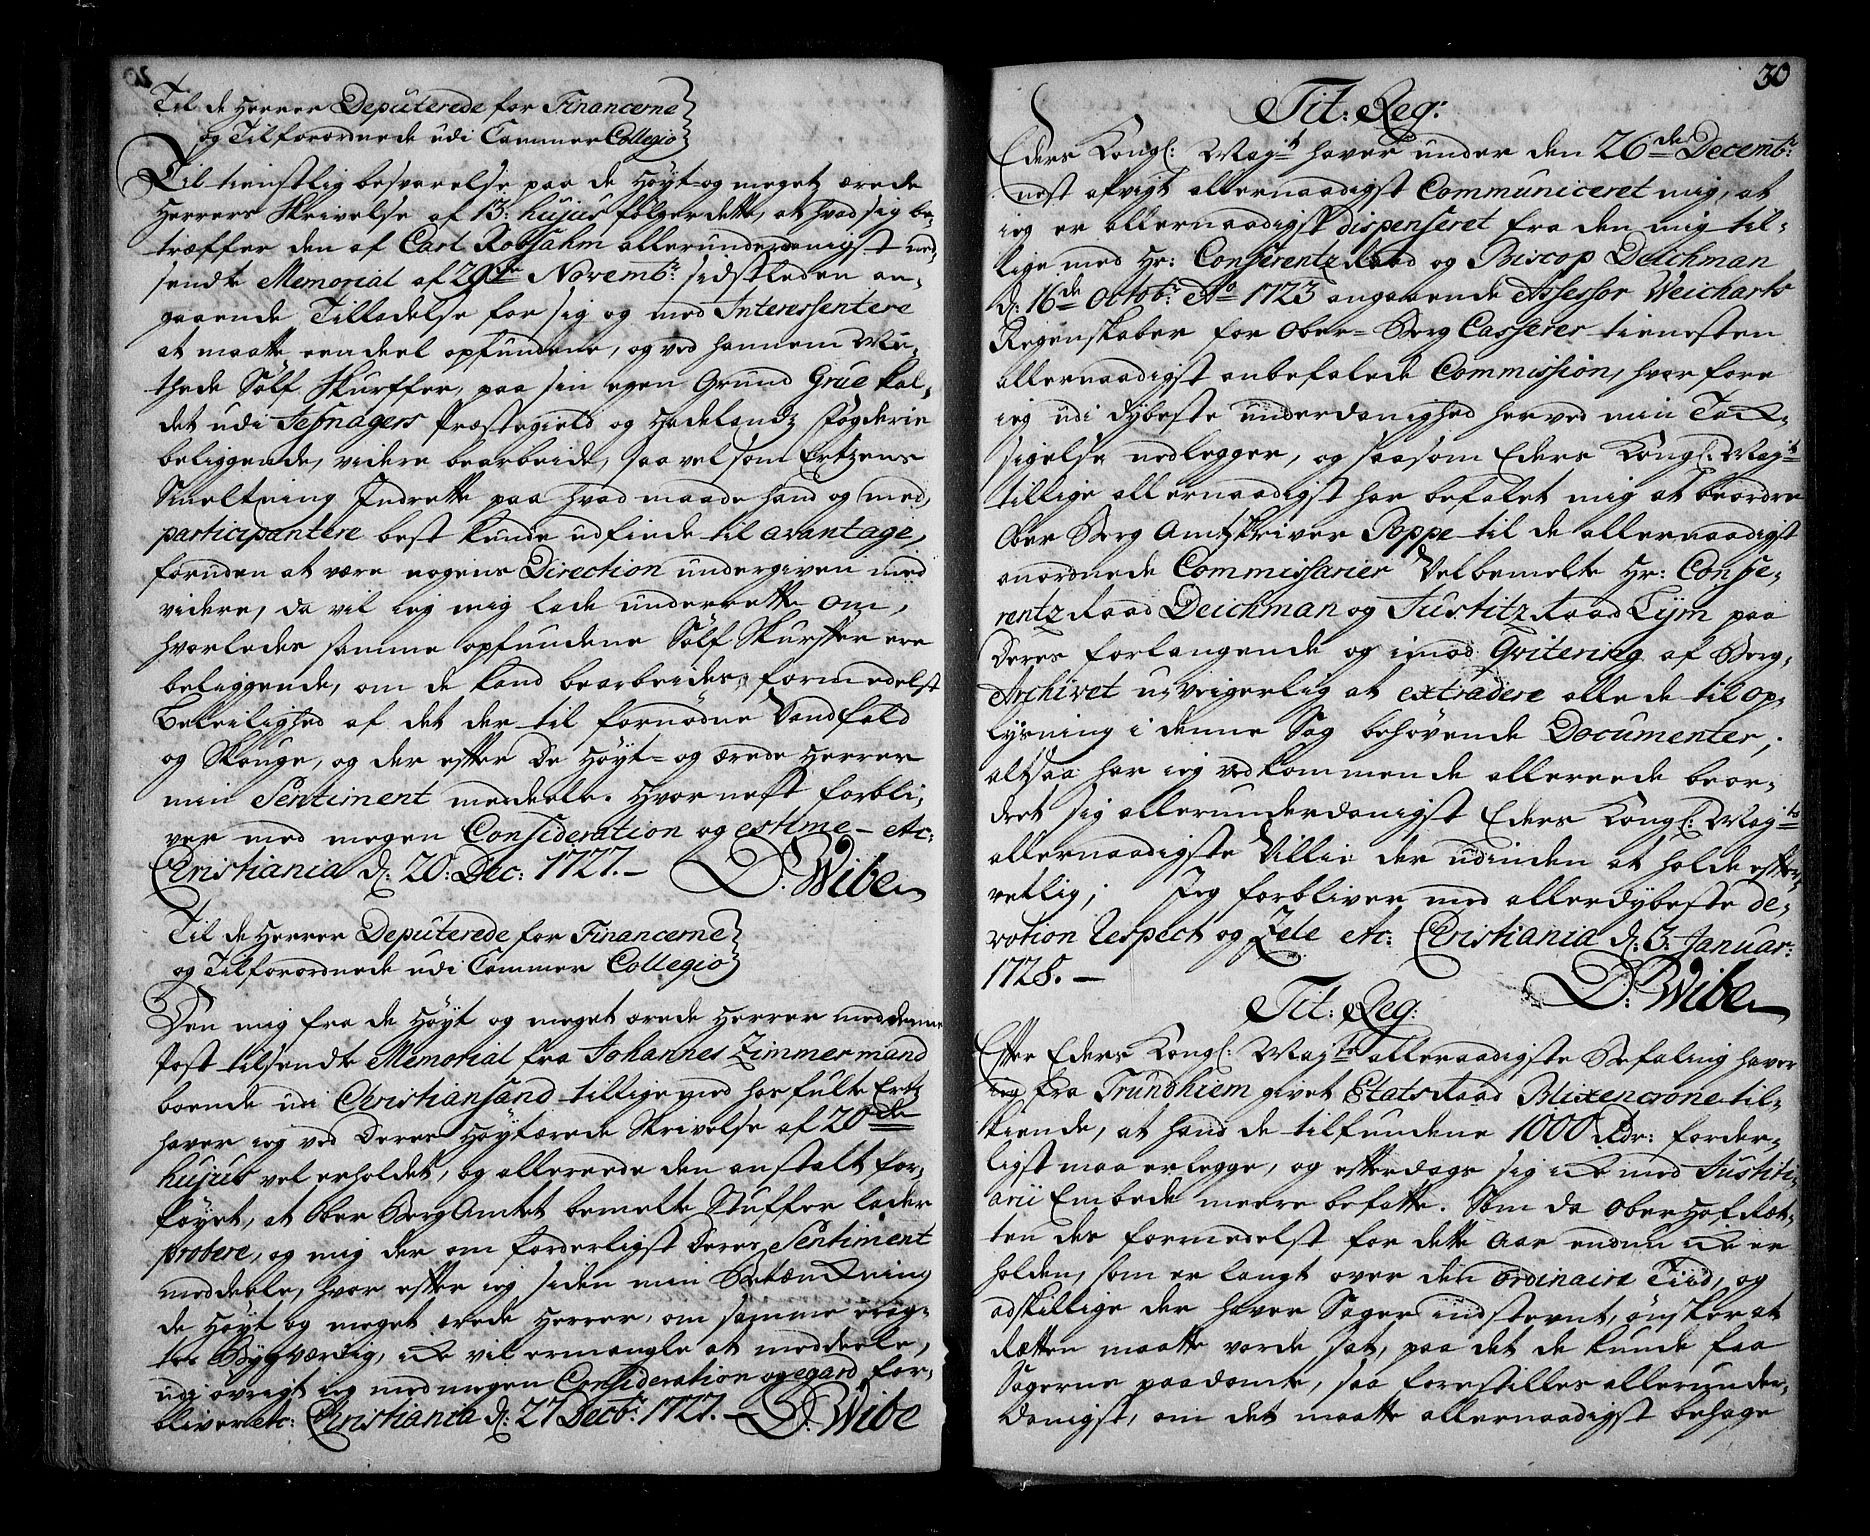 Til de Herrer Deputerede for Financerne
og Tilforordnede udi Cammer Collegio
Til tienstlig besvarelse paa de Høyt- og meget ærede
Herrers Skrivelse af 13: hujus følger dette, at hvad sig be-
træffer den af Carl Robsahm allerunderdanigst ned-
sendte Memorial af 29de Novembr: sidstleden an-
gaaende Tilladelse for sig og med Interessentere
at maatte eendeel opfundene, og ved hannem Mu-
thede Sølf Skurffer, paa sin egen Grund Grue kal-
det udi Jefnagers Præstegield og Hadelandz Fogderie
beliggende, videre bearbeide, saa vel som Ertzens
Smeltning Indrette paa hvad maade hand og med-
participantere best kunde udfinde til avantage,
foruden at være nogens Direction undergiven med
videre, da vil ieg mig lade underrette om,
hvorledes samme opfundene Sølf Skurffer ere
beliggende, om de kand bearbeides, formedelst
Beleilighed af det der til fornødne Vandfald
og Skouge, og der efter De Høyt- og ærede Herrer
min Sentiment meddeele. Hvor nest forbli-
ver med megen Consideration og estime - etc:
Christiania d: 20: Dec: 1727. -
D: Wibe
Til de Herrer Deputerede for Financerne
og Tilforordnede udi Cammer Collegio
Den mig fra de Høyt og meget ærede Herrer med denne
Post tilsendte Memorial fra Johannes Zimmermand
boende udi Christiansand tillige med hosfulte Ertz
haver ieg ved Deres Høytærede Skrivelse af 20de
hujus vel erholdet, og allereede den anstalt for-
føyet, at Ober Berg Amtet bemelte Stuffer lader
probere, og mig der om forderligst Deres Sentiment
meddeele, hvor efter ieg siden min Betænkning
de Høyt og meget ærede Herrer, om samme erag-
tes Bygværdig, icke vil ermangle at meddeele,
udi øvrigt ieg med megen Consideration og egard for-
bliver etc: Christiania d: 27 Decbr: 1727. - D: Wibe
30
Tit: Reg:
Eders Kongl: Mayt haver under den 26de Decembr:
nest afvigt allernaadigst Communiceret mig, at
ieg er allernaadigst dispenseret fra den mig til-
lige med Hr: Conferentz Raad og Biscop Deichman
d: 16de Octobr: Ao 1723 angaaende Assessor Weicharts
Regenskaber for Ober-Berg Casserer tienesten
allernaadigst anbefalede Commission, hvorfore
ieg udi dybeste underdanighed herved min Tack-
sigelse nedlegger, og saasom Eders Kongl: Mayt
tillige allernaadigst har befalet mig at beordre
Ober Berg Amtskriver Poppe til de allernaadigst
anordnede Commissarier Velbemelte Hr: Confe-
rentz Raad Deichman og Justitz Raad Tijm paa
Deres forlangende og imod Qvitering af Berg-
Archivet uveigerlig at extradere alle de til op-
lysning i denne Sag behøvende Documenter,
altsaa har ieg vedkommende allereede beor-
dret sig allerunderdanigst Eders Kongl: Mayts
allernaadigste Villie der udinden at holde efter-
retlig; Jeg forbliver med allerdybeste de-
votion Respect og Zele etc: Christiania d: 3: Januar:
1728. -
D: Wibe
Tit: Reg:
Efter Eders Kongl: Mayts allernaadigste Befaling haver
ieg fra Trundhiem givet Etats Raad Blixencrone til-
kiende, at hand de tilfundene 1000 Rdr: forder-
ligst maa erlegge, og efterdags sig icke med Justiti-
arii Embede meere befatte. Som da Ober Hof Ret-
ten der formedelst for dette Aar endnu icke er
holden, som er langt over den ordinaire Tiid, og
adskillige der haver Sager indstevnt, ønsker at
Retten maatte vorde sat, paa det de kunde faa
Sagerne paadømte, saa forestilles allerunder-
danigst, om det maatte allernaadigst behage